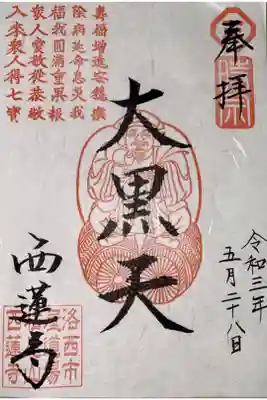 奉拝
令和三年
五月二十八日
大黒天
壽福増進安穏樂
除病延命息災我
福我圓満重果報
衆人愛敬從恭敬
入来衆人得七寶
西蓮寺
洛西市
道場
西蓮寺